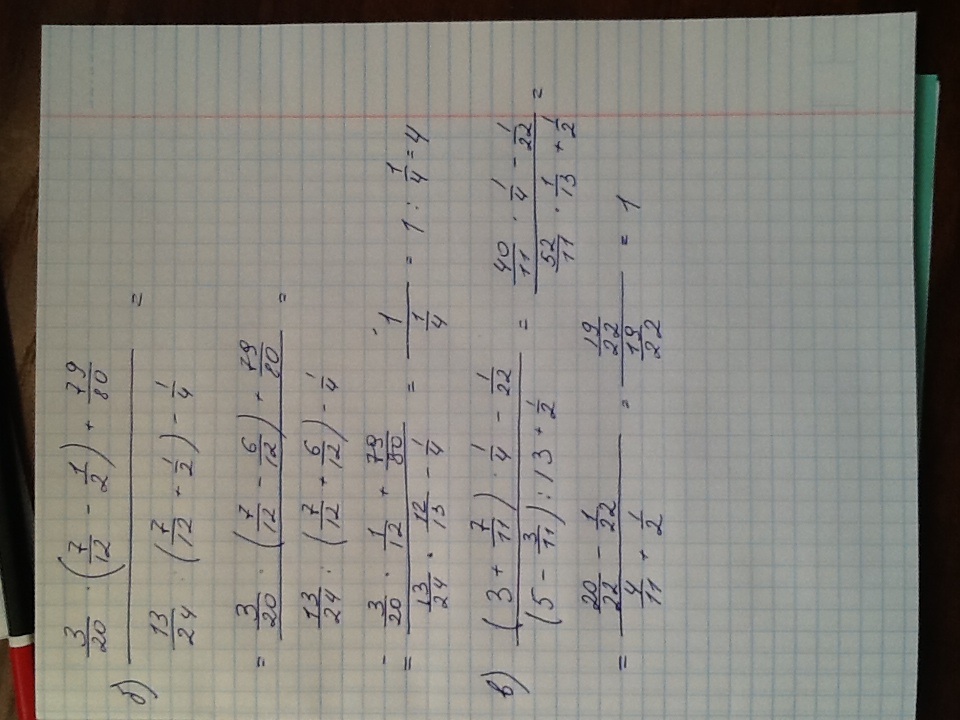 б) (3/20 · (7/12 - 1/2) + 79/80) / (13/24 : (7/12 + 1/2) - 1/4) =
= (3/20 · (7/12 - 6/12) + 79/80) / (13/24 : (7/12 + 6/12) - 1/4) =
= (3/20 · 1/12 + 79/80) / (13/24 · 12/13 - 1/4) = 1 / (1/4) = 1 : 1/4 = 4
в) ((3 + 7/11) · 1/4 - 1/22) / ((5 - 3/11) : 13 + 1/2) = (40/11 · 1/4 - 1/22) / (52/11 · 1/13 + 1/2) =
= (20/22 - 1/22) / (4/11 + 1/2) = (19/22) / (19/22) = 1